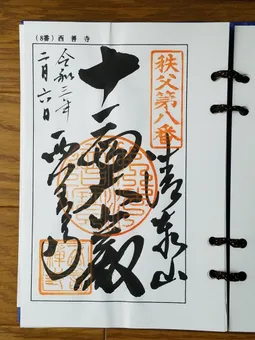 (8番) 西善寺
秩父第八番
青泰山
十一面大士殿
令和三年
二月六日
西善寺